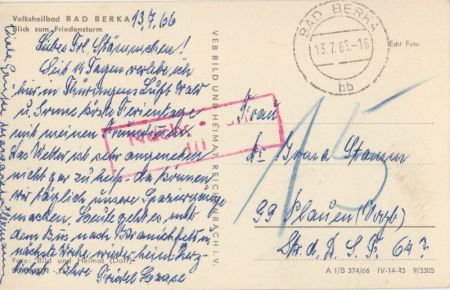 Volksheilbad BAD BERKA
Blick zum Friedensturm
13.7.66
Liebes Frl. Stämmchen!
Seit 14 Tagen verlebe ich
hier in Thüringens Luft, Wald
u. Sonne Ferientage
mit meinen
Das Wetter ist sehr angenehm
nicht gar zu heiß. da können
wir täglich unsere Spaziergänge
machen. Heute geht es mit
dem Bus nach Kranichfeld u.
nächste Woche wieder heim. Herz-
Ihre Friedel
Foto: Bild und Heimat (Dorr)
VEB BILD UND HEIMAT REICHENBACH I. V.
BAD BERKA
13.7.66-16
bb
Echt Foto
Nach
15
Frau
Stamm
99 Plauen (Vogtl)
Str. d. D. S. F. 64?
A 1/B 374/66 IV-14-45 9/3305